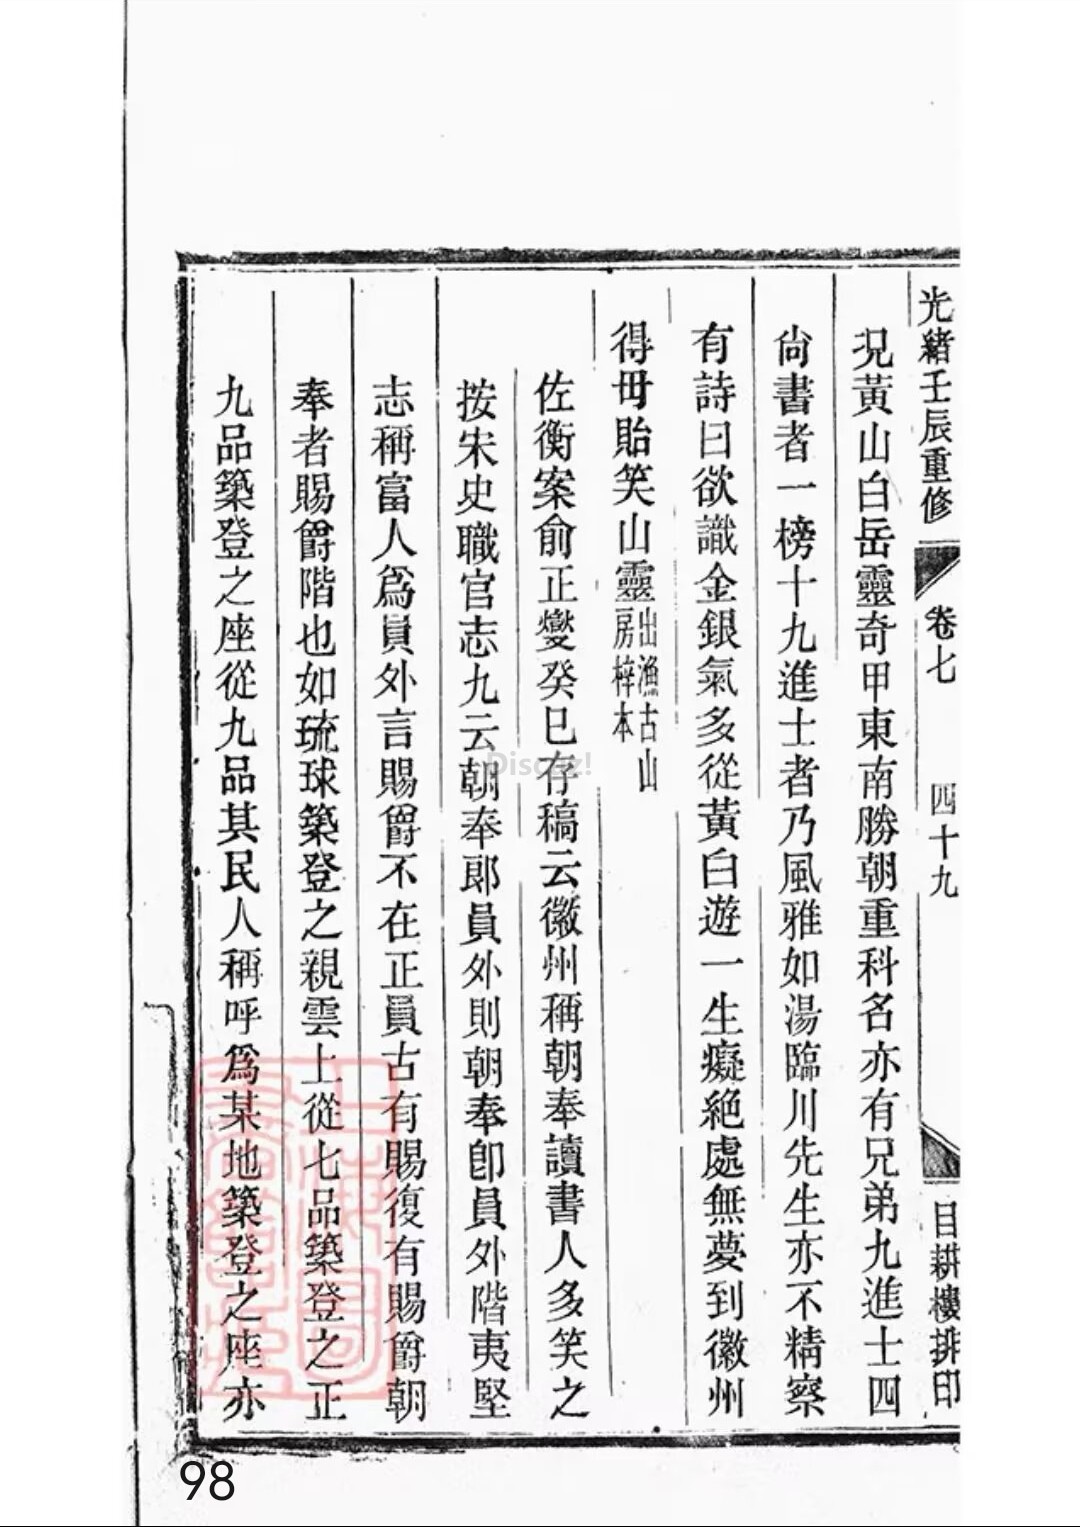 光緒壬辰重修 卷七 四十九 目耕樓排印
況黃山白岳靈奇甲東南勝朝重科名亦有兄弟九進士四
尙書者一榜十九進士者乃風雅如湯臨川先生亦不精察
有詩曰欲識金銀氣多從黃白遊一生癡絕處無夢到徽州
得毋貽笑山靈
出漁古山
房梓本
佐衡案俞正燮癸巳存稿云徽州稱朝奉讀書人多笑之
按宋史職官志九云朝奉郎員外則朝奉卽員外階夷堅
志稱富人爲員外言賜爵不在正員古有賜復有賜爵朝
奉者賜爵階也如琉球築登之親雲上從七品築登之正
九品築登之座從九品其民人稱呼爲某地築登之座亦
上海圖
書館藏
Discuz!
98